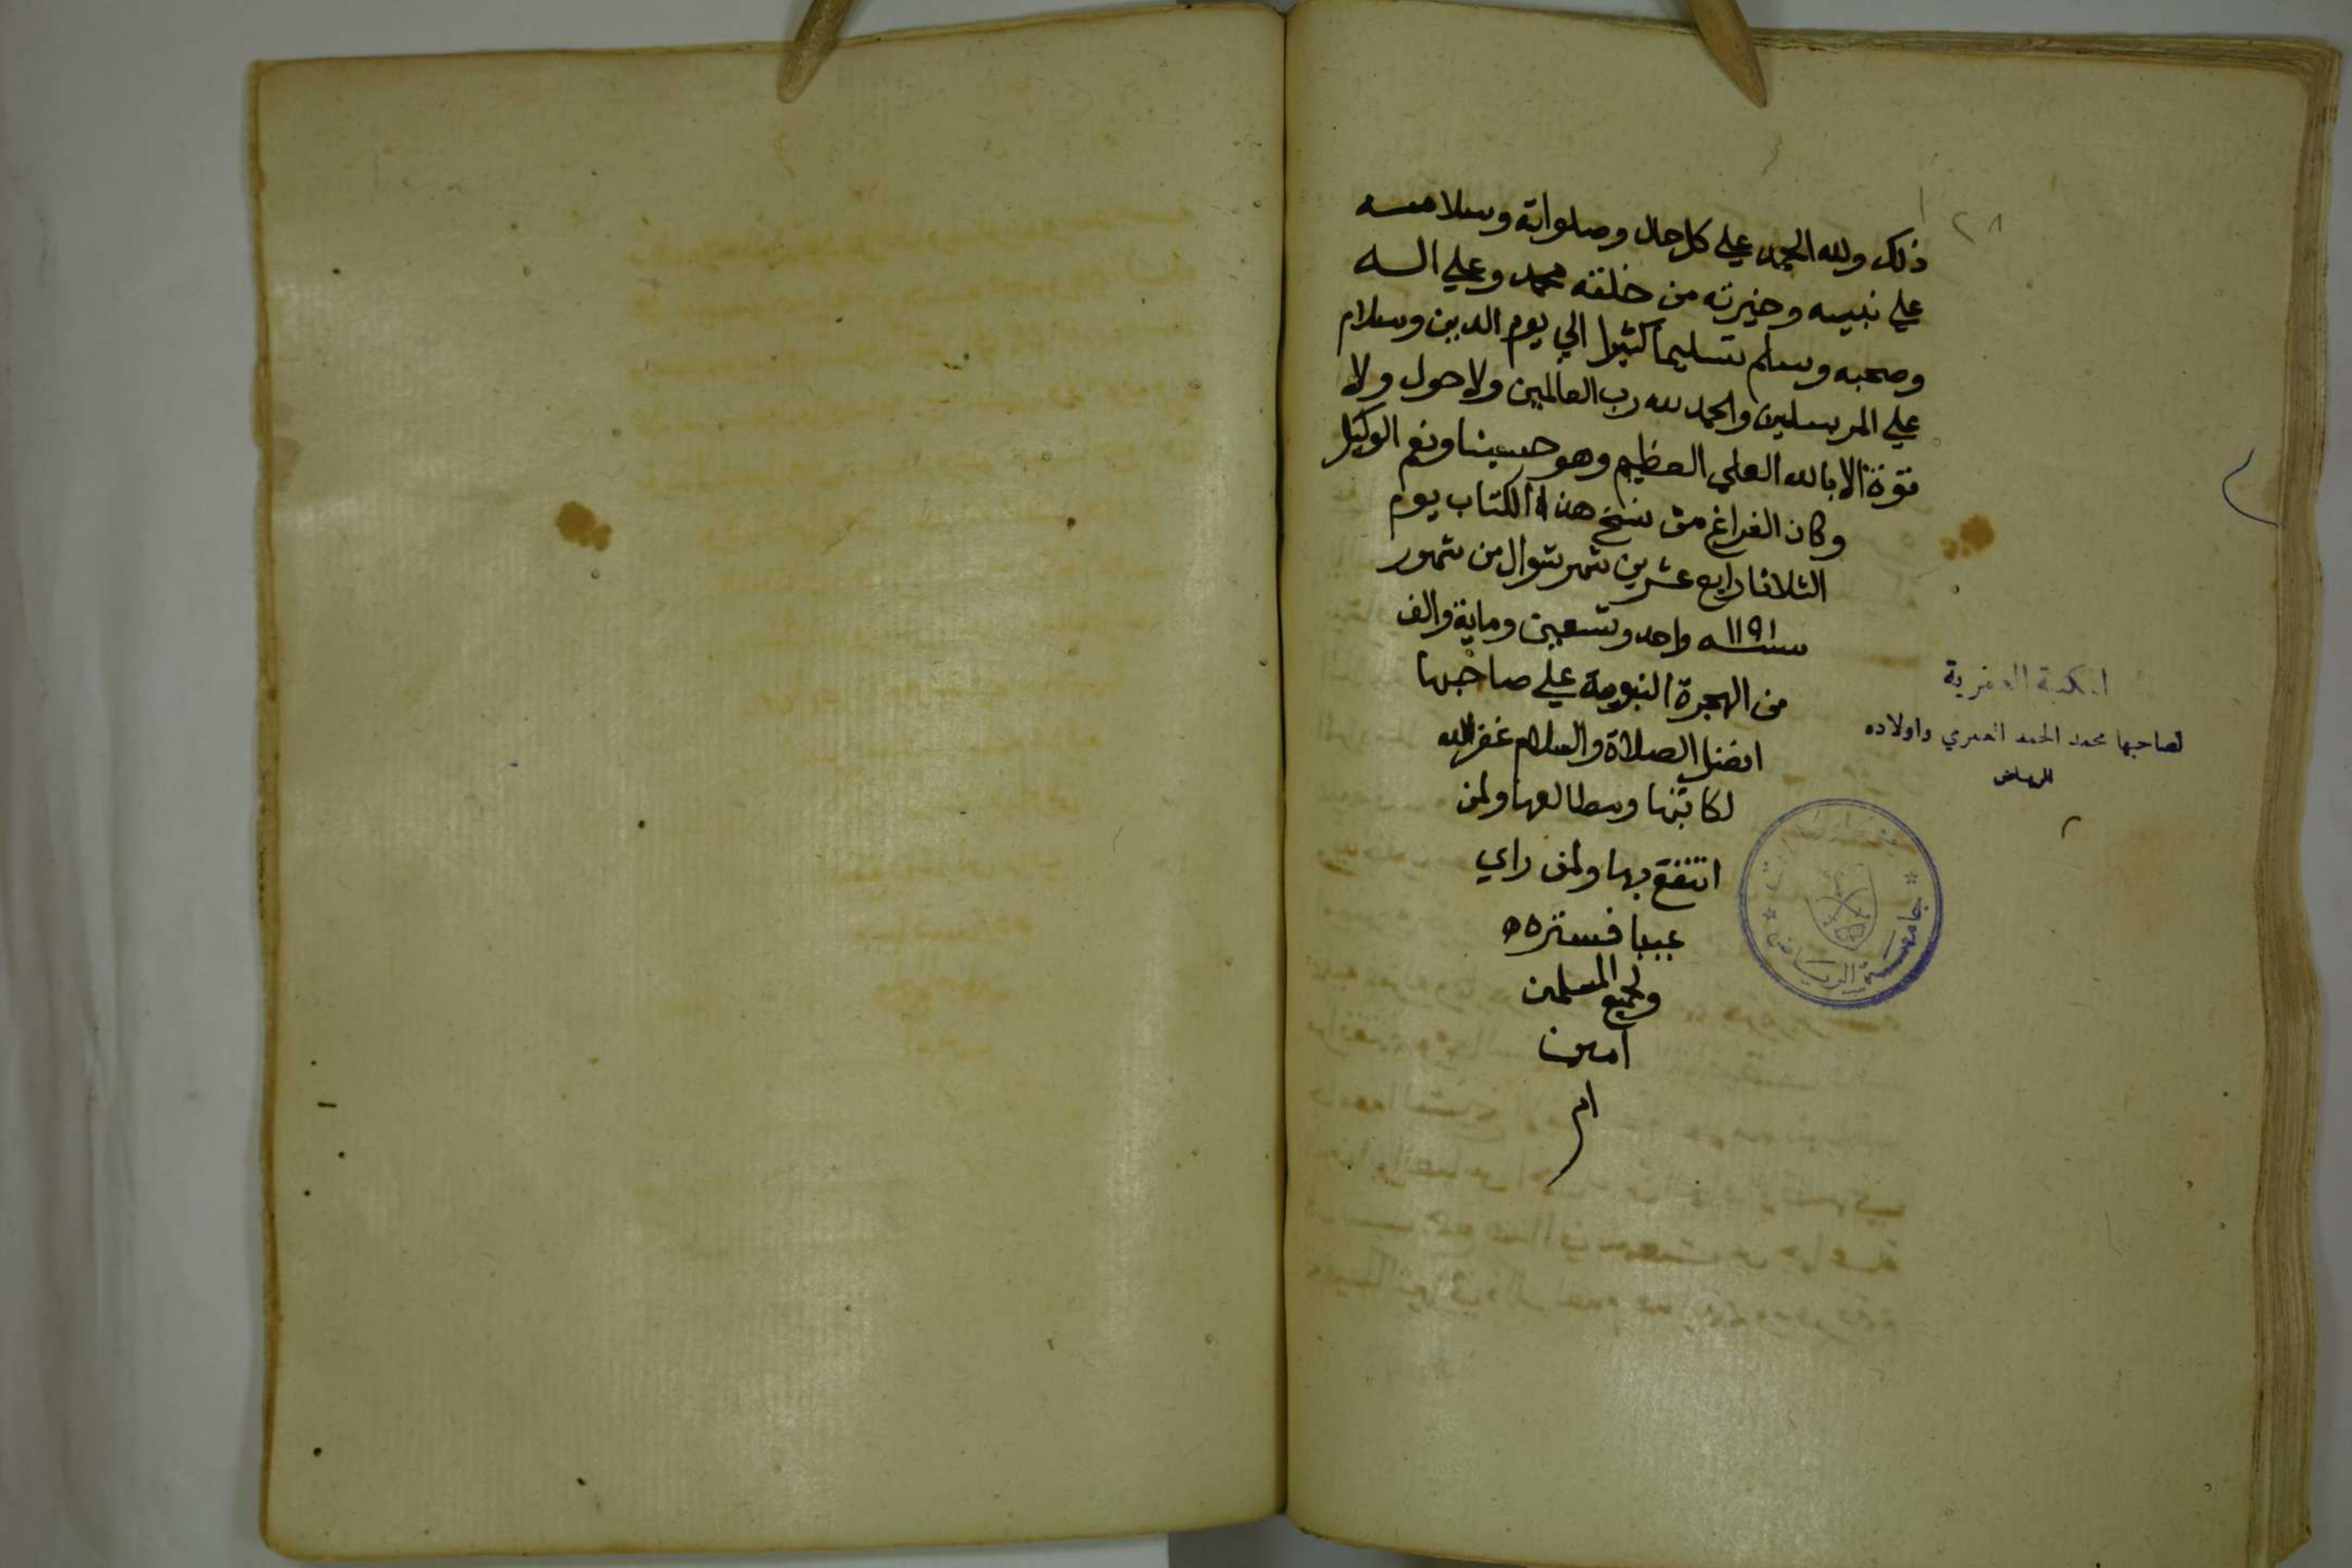 ٢٨
ذلك ولله الحمد علي كل حال وصلواته وسلامه
علي نبيه وخيرته من خلقه محمد وعلي اله
وصحبه وسلم تسليما كثيرا الي يوم الدين وسلام
علي المرسلين والحمد لله رب العالمين ولا حول ولا
قوة الا بالله العلي العظيم وهو حسبنا ونعم الوكيل
وكان الفراغ من نسخ هذه الكتاب يوم
الثلاثا رابع عشرين شهر شوال من شهور
سنة ١١٩١ واحد وتسعين وماية والف
من الهجرة النبوية علي صاحبها
افضل الصلاة والسلام غفر الله
لكاتبها ومطالعها ولمن
انتفع بها ولمن راي
عيبا فستره
ولجميع المسلمين
امين
ام
المكتبة العمرية
لصاحبها محمد الحمد العمري واولاده
الرياض
جامعة الرياض